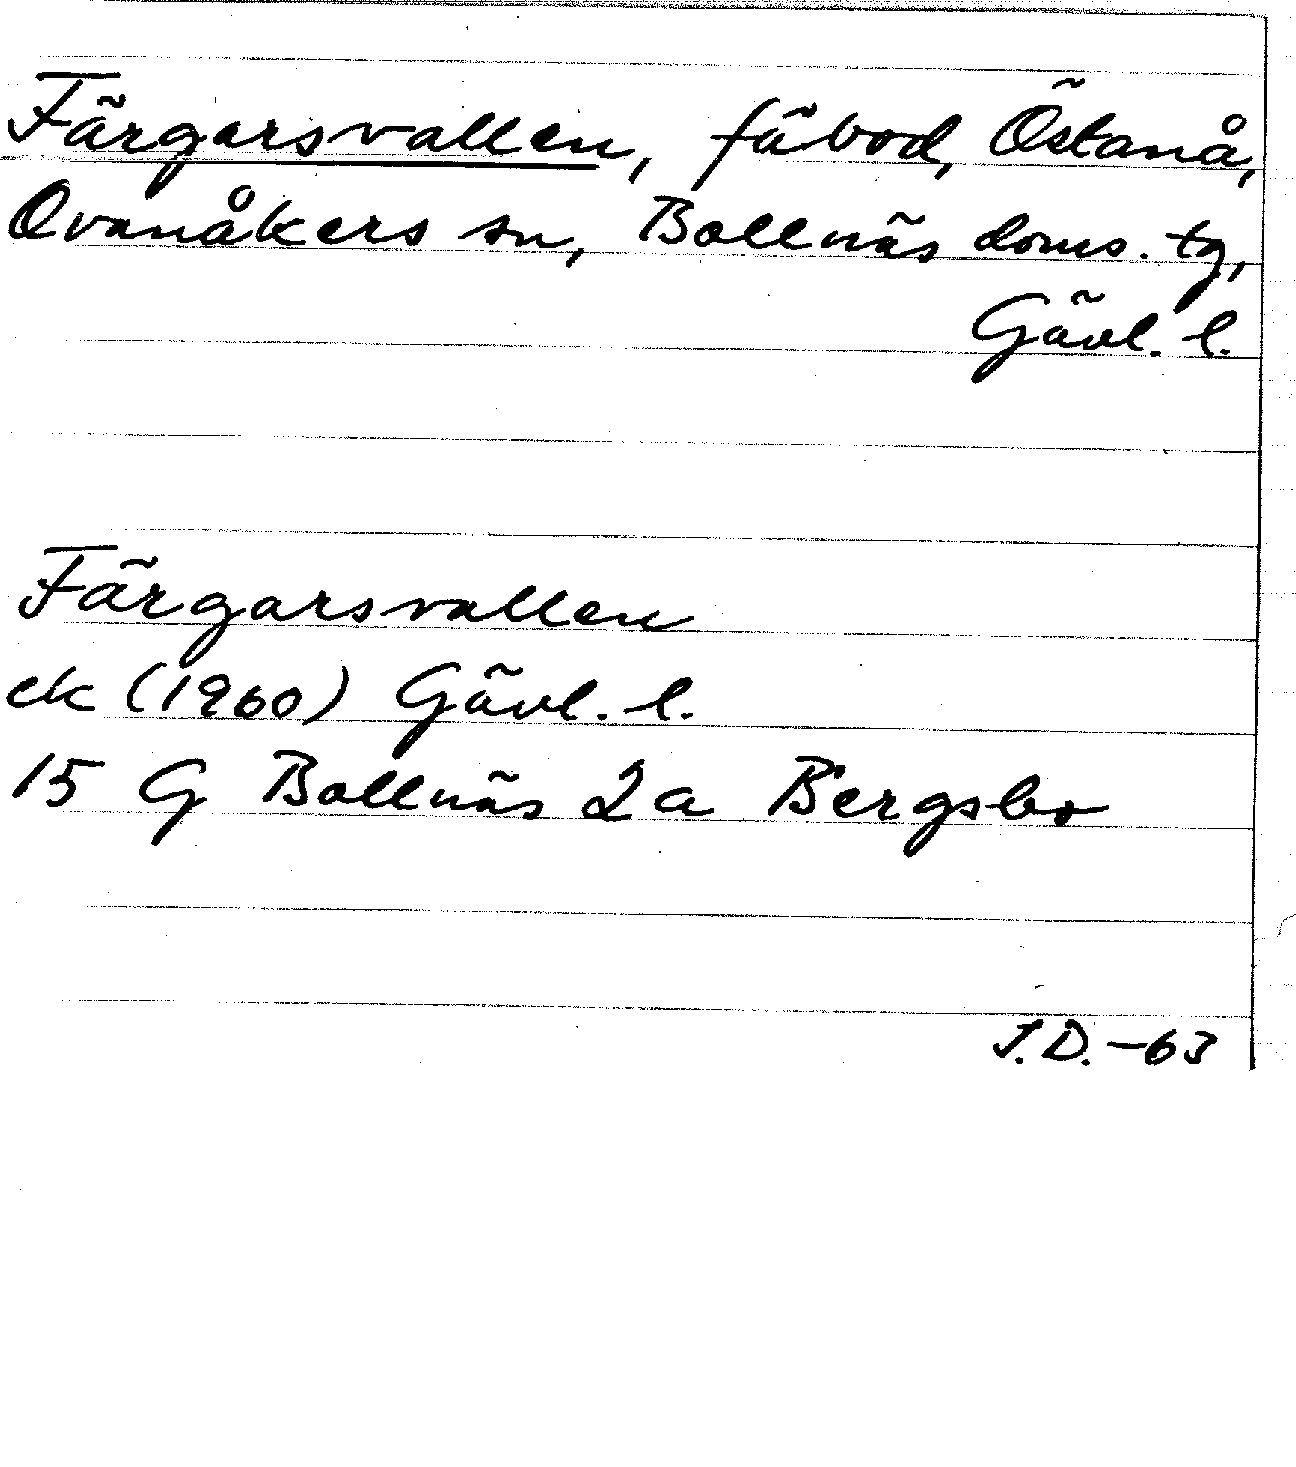 Färgarsvallen, fäbod, Östanå,
Ovanåkers sn, Bollnäs doms. tg,
Gävl. l.
Färgarsvallen
ek (1960) Gävl. l.
15 G Bollnäs 2a Bergsbo
J.D. -63